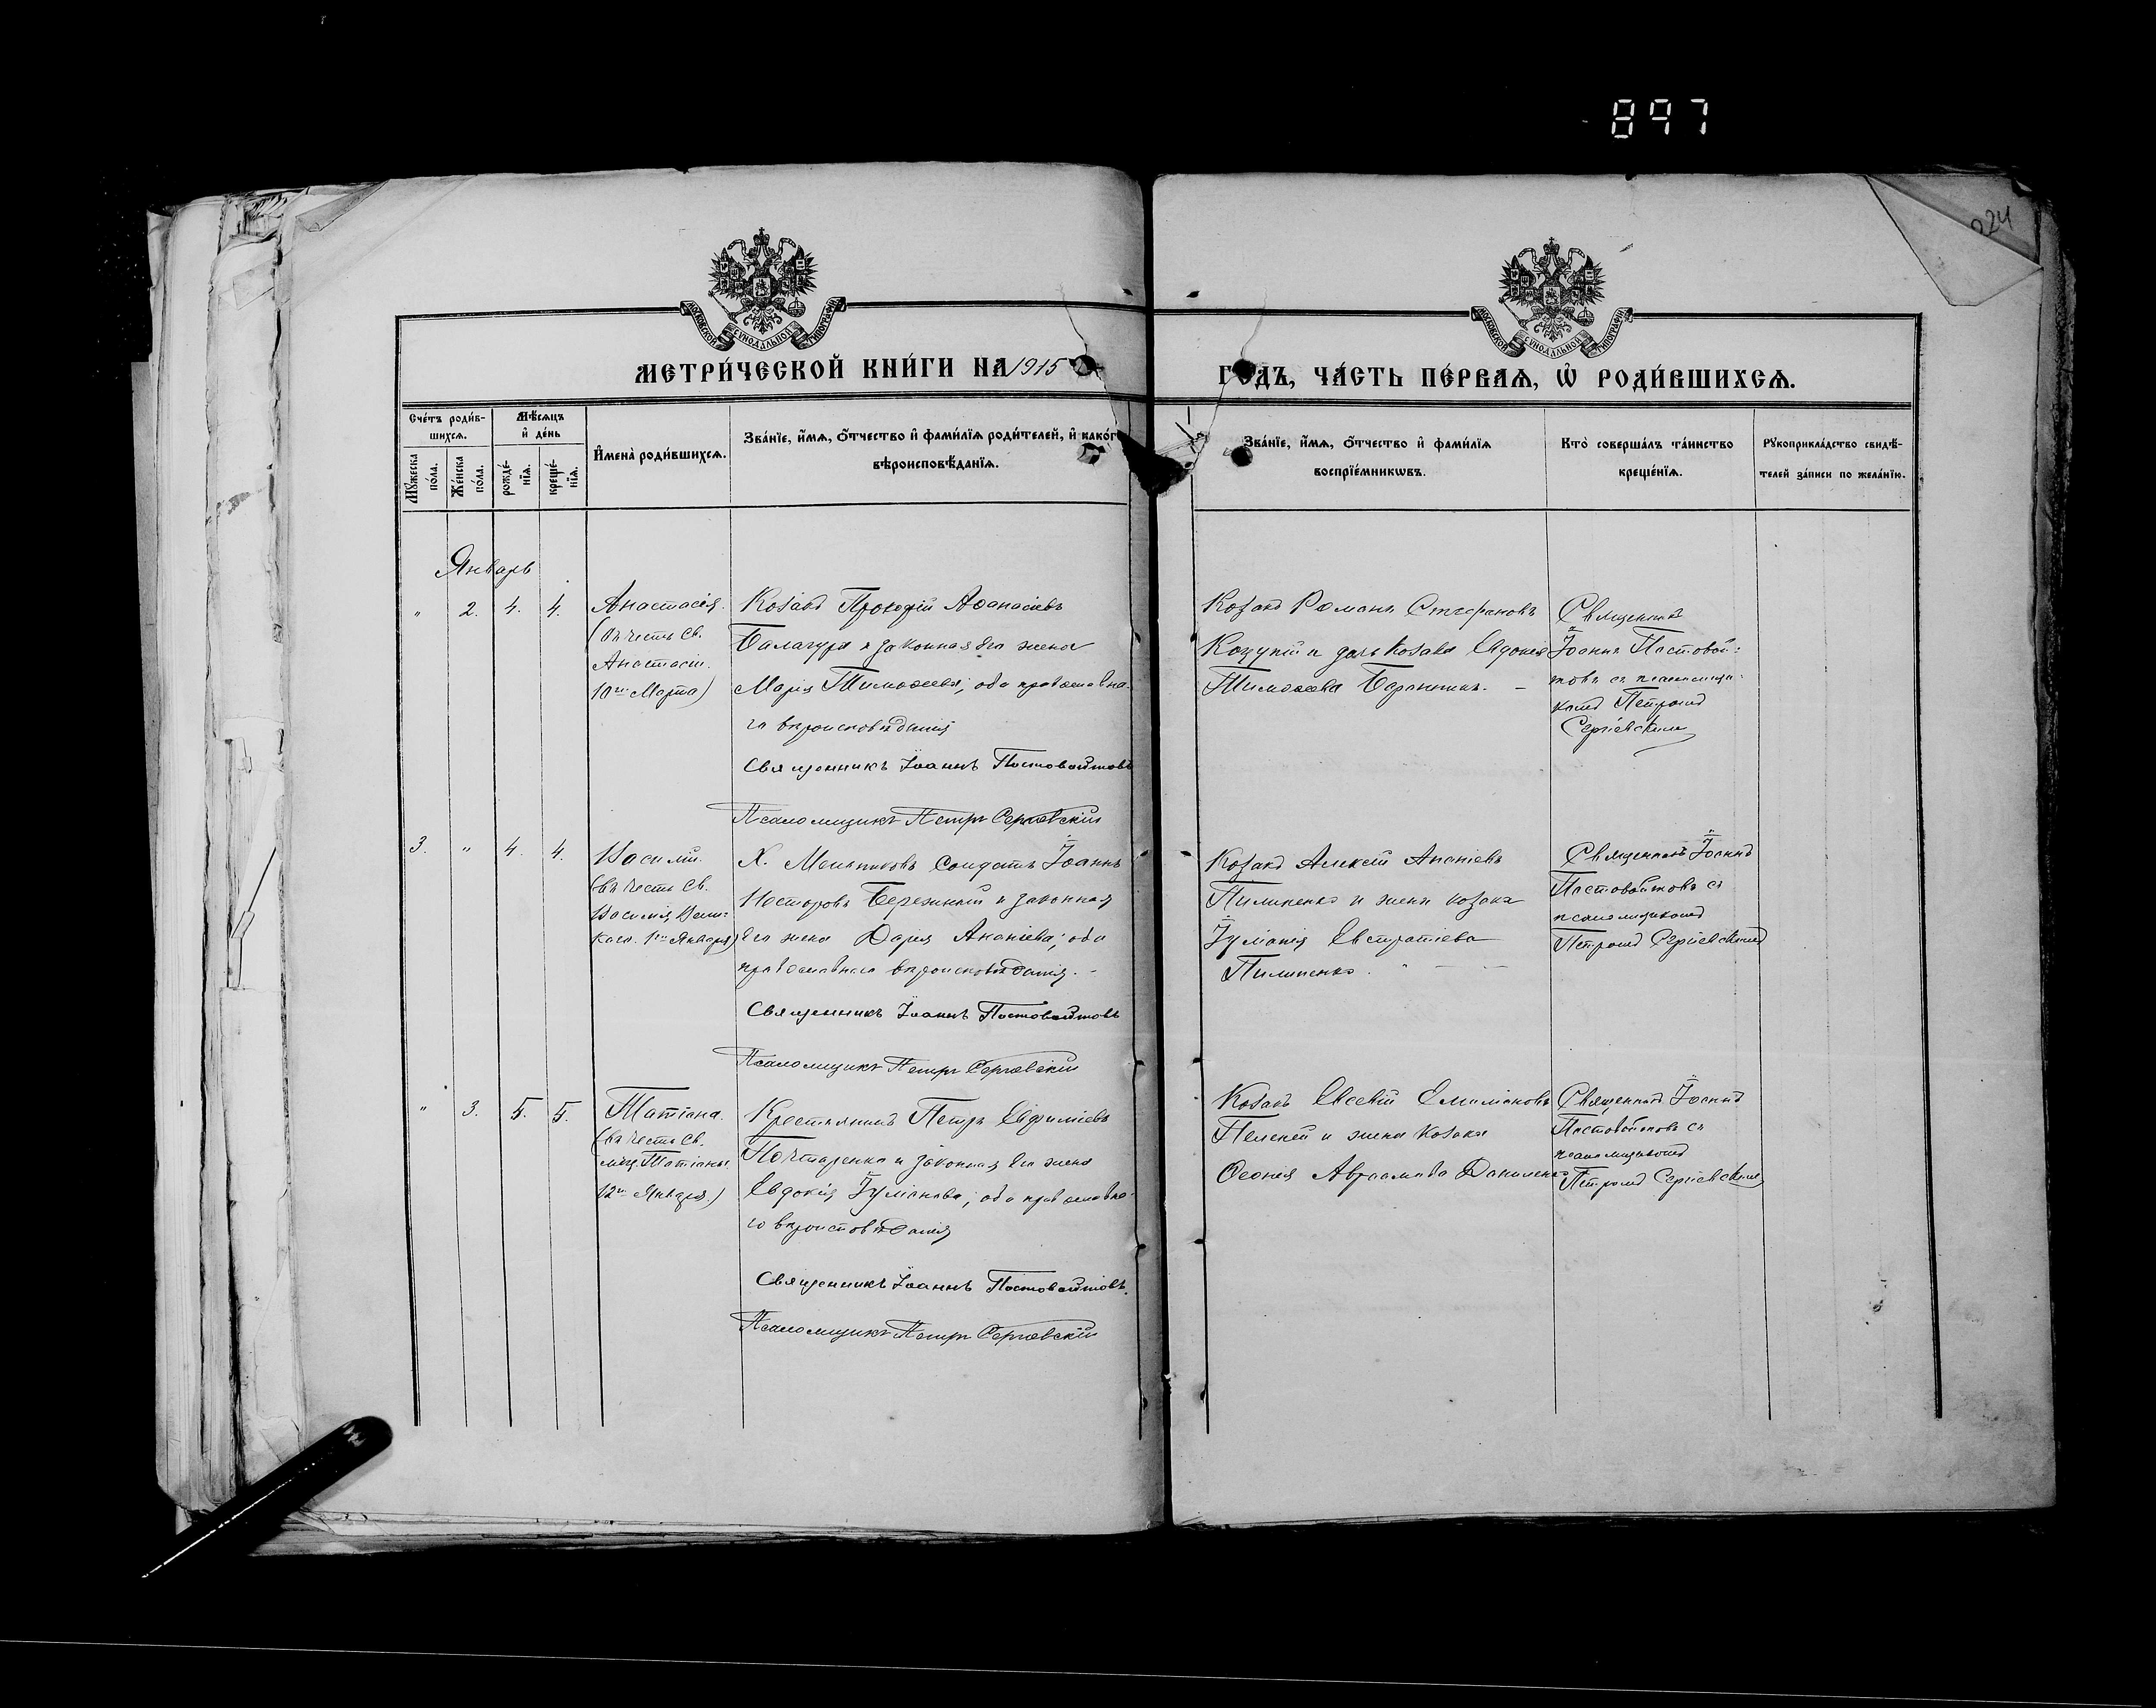 897
224
МОСКОВСКОЙ СѴНОДАЛЬНОЙ ТИПОГРАФІИ
МОСКОВСКОЙ СѴНОДАЛЬНОЙ ТИПОГРАФІИ
МЕТРИ́ЧЕСКОЙ КНИ́ГИ НА 1915 ГОДЪ, ЧА́СТЬ ПЕ́РВАѦ, Ѡ РОДИ́ВШИХСѦ.
Сче́тъ роди́в-
шихсѧ.
Мꙋ́жеска
по́ла.
Же́нска
по́ла.
Мѣ́сѧцъ
и҆ де́нь
рожде́-
нїѧ.
креще́-
нїѧ.
И҆мена̀ роди́вшихсѧ.
Зва́нїе, и҆́мѧ, ѻ҆́тчество и҆ фами́лїѧ роди́телей, и҆ како́гѡ
вѣроисповѣ́данїѧ.
Зва́нїе, и҆́мѧ, ѻ҆́тчество и҆ фами́лїѧ
воспрїе́мникѡвъ.
Кто̀ соверша́лъ та́инство
креще́нїѧ.
Рꙋкоприкла́дство свидѣ́-
телей за́писи по жела́нїю.
Январь
" 2. 4. 4.
Анастасія.
(въ честь св.
Анастасіи
10го Марта)
Козакъ Прокофій Аѳанасіевъ
Балагура и законная его жена
Марія Тимоѳеева; оба православна-
го вѣроисповѣданія
Священникъ Іоаннъ Постовойтовъ
Псаломщикъ Петръ Сергіевскій
Козакъ Романъ Стефановъ
Кацупій и дочь козака Евдокія
Тимоѳеева
Священникъ
Іоаннъ Постовой-
товъ съ псаломщи-
комъ Петромъ
Сергіевскимъ
3. " 4. 4.
Василій.
(въ честь св.
Василія Вели-
каго. 1го Января)
Х. Мельниковъ Солдатъ Іоаннъ
Несторовъ Бережный и законная
его жена Дарія Ананіева; оба
православнаго вѣроисповѣданія. -
Священникъ Іоаннъ Постовойтовъ
Псаломщикъ Петръ Сергіевскій
Козакъ Алексій Ананіевъ
Пилипенко и жена козака
Іуліанія Евстратіева
Пилипенко.
Священникъ Іоаннъ
Постовойтовъ съ
псаломщикомъ
Петромъ Сергіевскимъ
" 3. 5. 5.
Татіана.
(въ честь св.
мцы Татіаны.
12го Января.)
Крестьянинъ Петръ Евфиміевъ
Почтаренко и законная его жена
Евдокія Іуліанова; оба православна-
го вѣроисповѣданія
Священникъ Іоаннъ Постовойтовъ.
Псаломщикъ Петръ Сергіевскій
Козакъ Евсевій Емиліановъ
Пелепей и жена козака
Ѳеонія Авраамова Даниленко
Священникъ Іоаннъ
Постовойтовъ съ
псаломщикомъ
Петромъ Сергіевскимъ